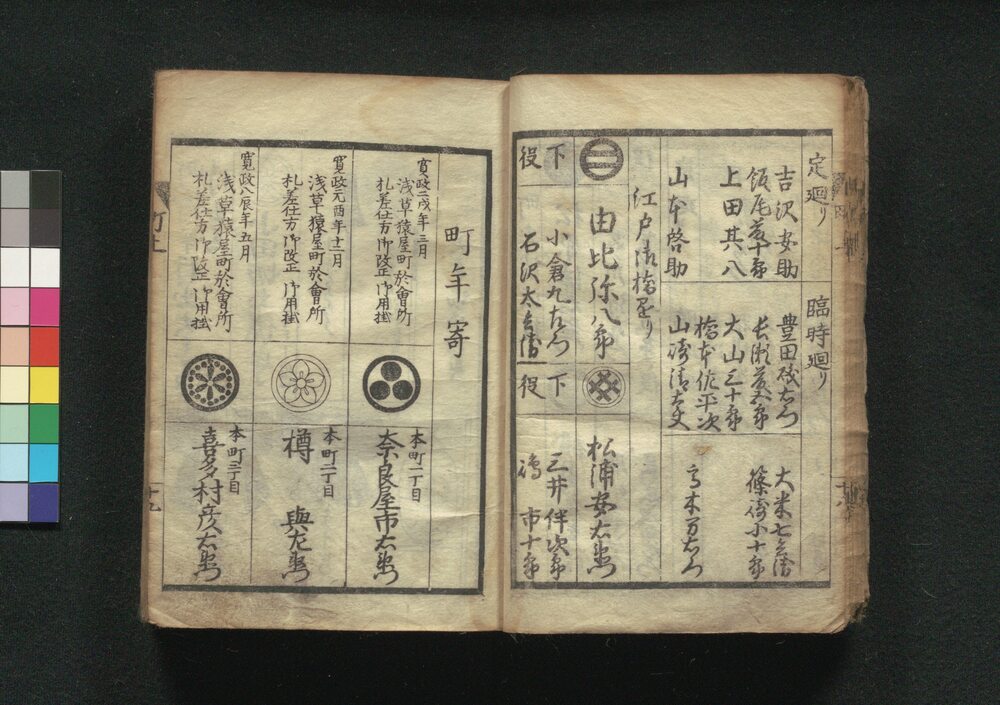 定廻り
吉沢安助
飯尾藤十郎
上田其八
山本啓助
臨時廻り
豊田磯右衛門
大山三十郎
橋本佐平次
山崎清太夫
大米七兵衛
篠崎小十郎
高木万右衛門
江戸橋
由比弥八郎
下役
小倉九左衛門
石沢太兵衛
松浦安右衛門
下役
三井伴次郎
嶋市十郎
町年寄
寛政二戌年三月
浅草猿屋町於會所
札差仕方御改正御用掛
本町一丁目
奈良屋市右衛門
寛政元酉年十二月
浅草猿屋町於會所
札差仕方御改正御用掛
本町二丁目
樽與左衛門
寛政八辰年五月
浅草猿屋町於會所
札差仕方御改正御用掛
本町三丁目
喜多村彦右衛門